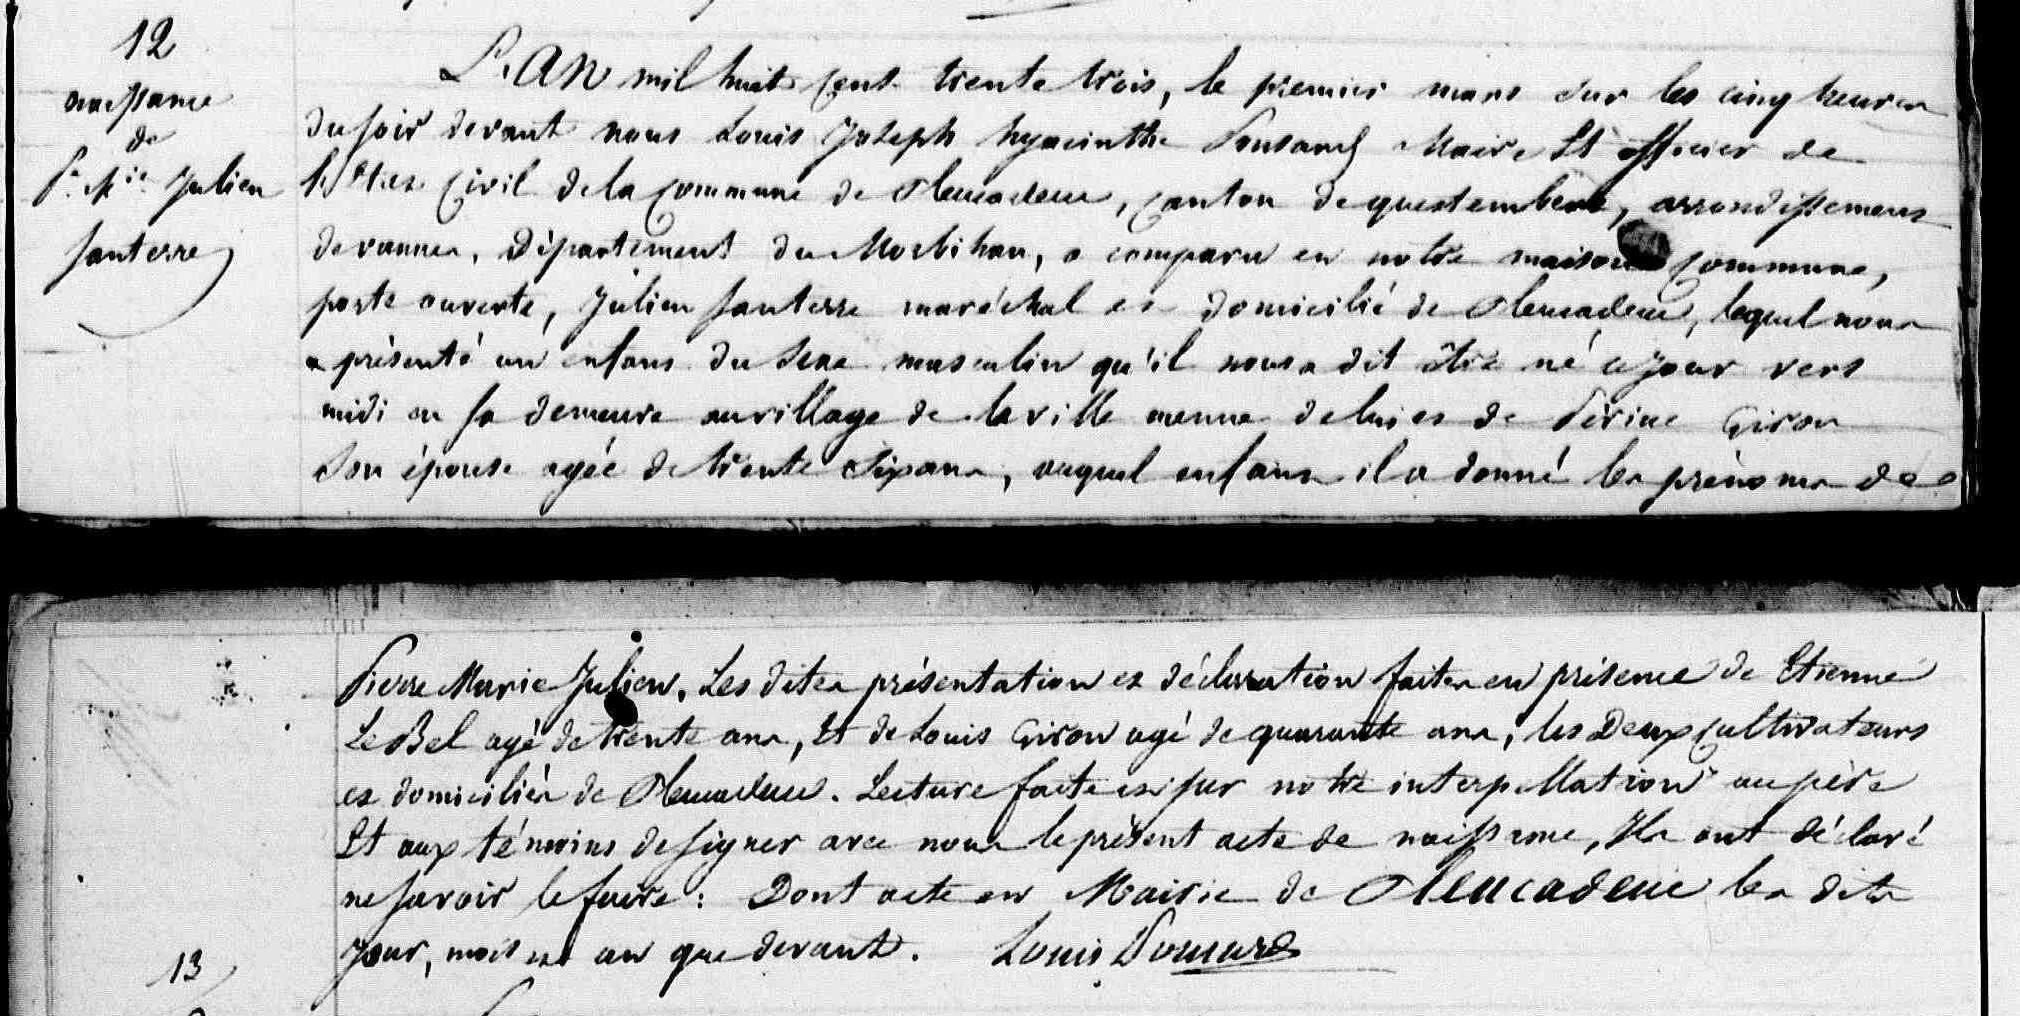 12
naissance
de
P.re M.ie Julien
Santerre
L'AN mil huit cent trente trois, le premier mars sur les cinq heures
du soir devant nous Louis Joseph hyacinthe Maire Et officier de
l'Etat Civil de la Commune de Pleucadeuc, Canton de questembert, arrondissement
de vannes, Département du Morbihan, a comparu en notre maison Commune,
porte ouverte, Julien Santerre maréchal et domicilié de Pleucadeuc, lequel nous
a présenté un enfant du Sexe masculin qu'il nous a dit être né ce jour vers
midi en sa demeure au village de la ville menne de lui et de Périne Giron
Son épouse agée de trente Six ans, auquel enfant il a donné les prénoms de
Pierre Marie Julien, Les dites présentation et déclaration faites en présence de Etienne
Le Bel agé de trente ans, Et de Louis Giron agé de quarante ans, les Deux Cultivateurs
et domiciliés de Pleucadeuc. Lecture faite et sur notre interpellation au père
Et aux témoins de signer avec nous le présent acte de naissance, Ils ont déclaré
ne savoir le faire : Dont acte en Mairie de Pleucadeuc les dits
Jour, mois et an que devant. Louis
13